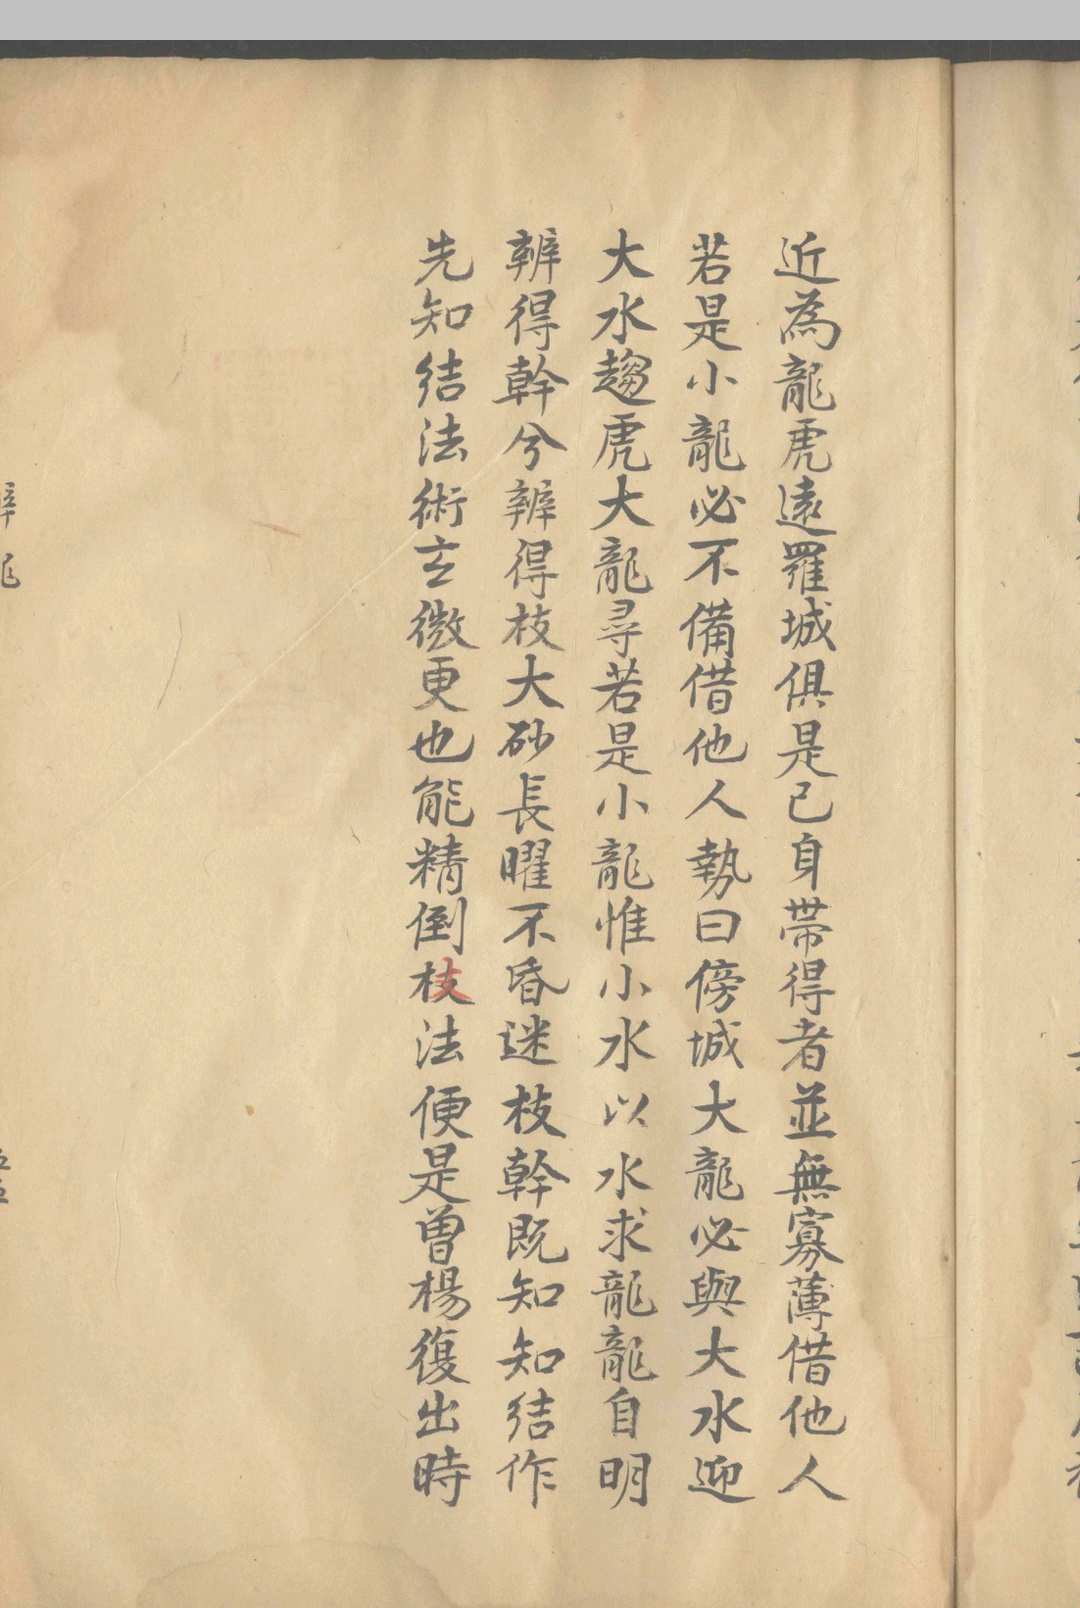 近為龍虎遠羅城俱是已身帶得者並無寡薄借他人
若是小龍必不備借他人勢曰傍城大龍必與大水迎
大水趨虎大龍尋若是小龍惟小水以水求龍龍自明
辨得幹兮辨得枝大砂長曜不昏迷枝幹既知知结作
先知结法術玄微更也能精倒枝法便是曾楊復出時